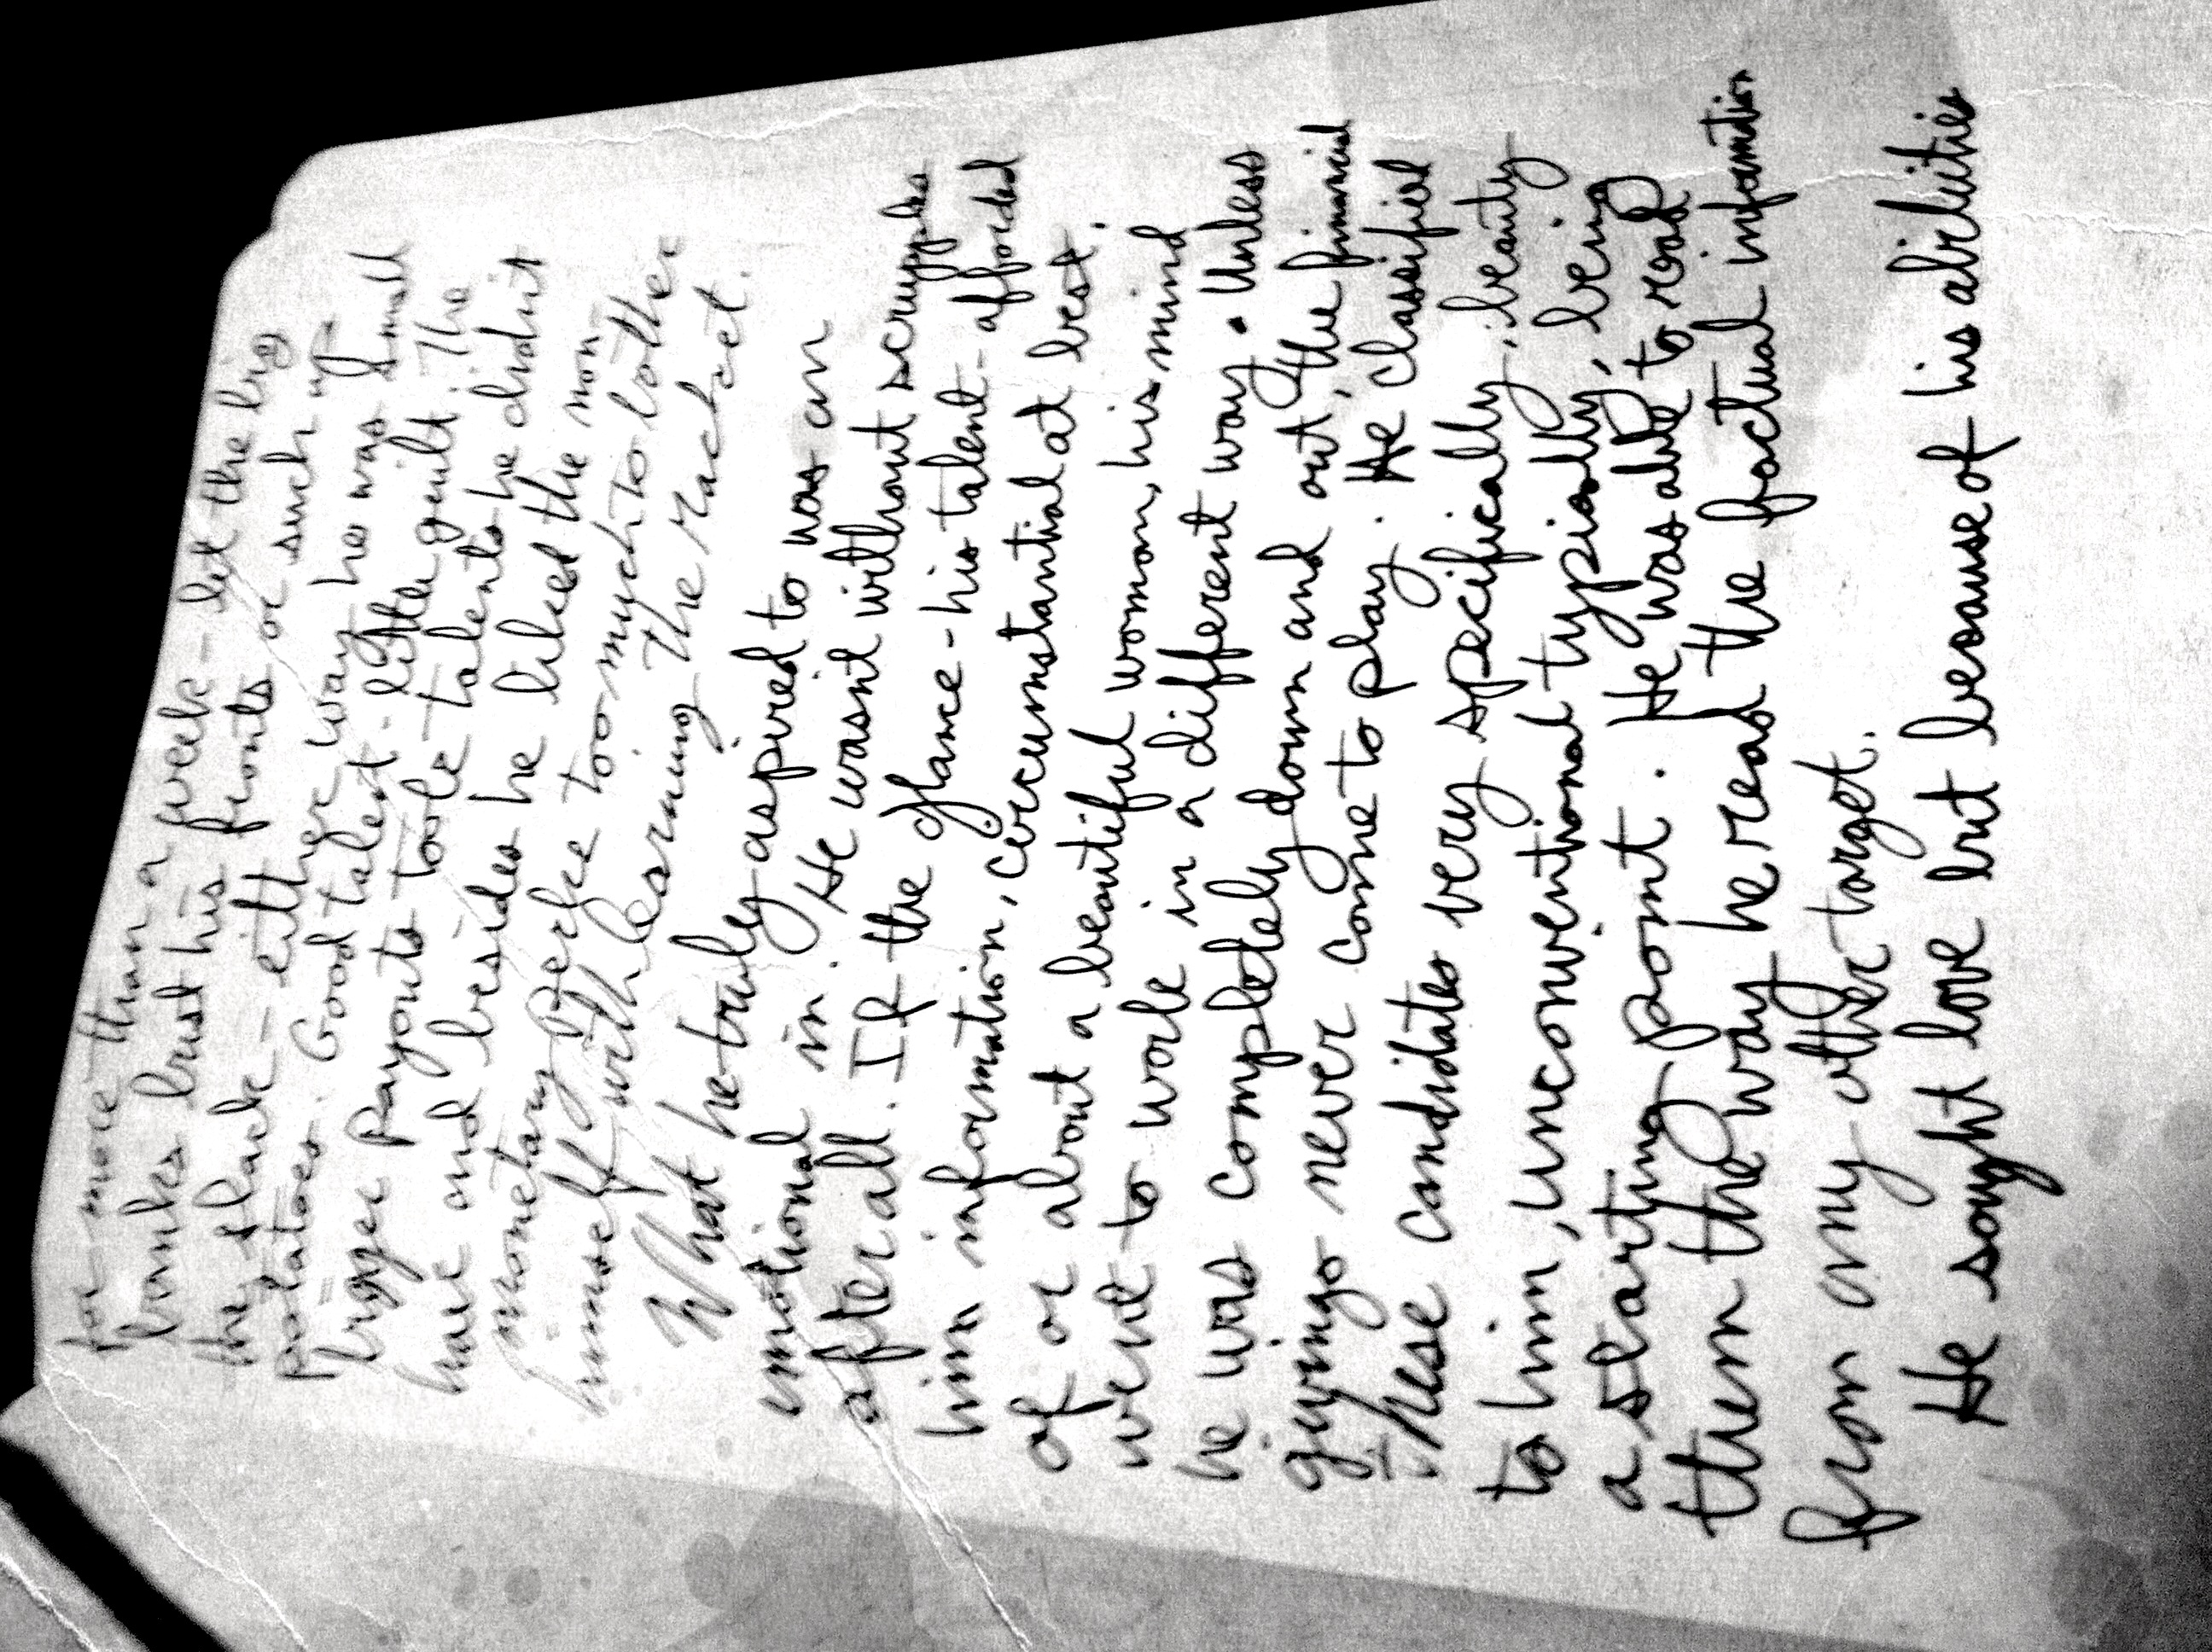 for more than a week - let the big
banks bust his fronts or such up
the slack - either way he was small
potatoes. Good talent - little guilt. The
bigger payouts took talents he didn't
have and besides he liked the non
monetary perks too much to bother
himself with learning the racket.
What he truly aspired to was an
emotional in. He wasnt without scruples
after all. If the glance - his talent - afforded
him information, circumstantial at best,
of or about a beautiful woman, his mind
went to work in a different way. Unless
he was completely down and out, the financial
givings never came to play. He classified
these candidates very specifically; beauty
to him, unconventional typically, being
a starting point. He was able to read
them the way he read the factual information
from any other target.
He sought love but because of his abilities